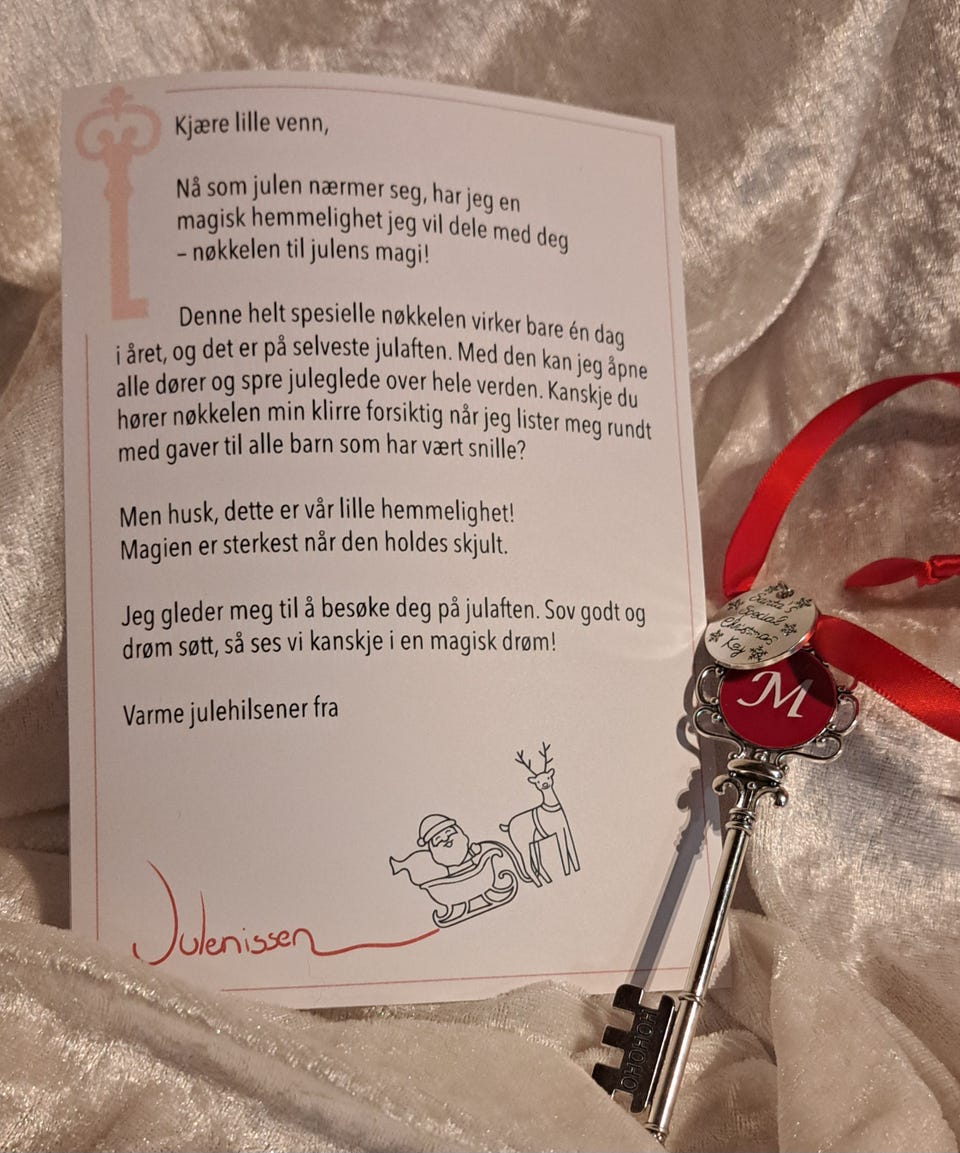 Kjære lille venn,
Nå som julen nærmer seg, har jeg en
magisk hemmelighet jeg vil dele med deg
– nøkkelen til julens magi!
Denne helt spesielle nøkkelen virker bare én dag
i året, og det er på selveste julaften. Med den kan jeg åpne
alle dører og spre juleglede over hele verden. Kanskje du
hører nøkkelen min klirre forsiktig når jeg lister meg rundt
med gaver til alle barn som har vært snille?
Men husk, dette er vår lille hemmelighet!
Magien er sterkest når den holdes skjult.
Jeg gleder meg til å besøke deg på julaften. Sov godt og
drøm søtt, så ses vi kanskje i en magisk drøm!
Varme julehilsener fra
Julenissen
Santa's
Special
Christmas
Key
M
HOHOHO